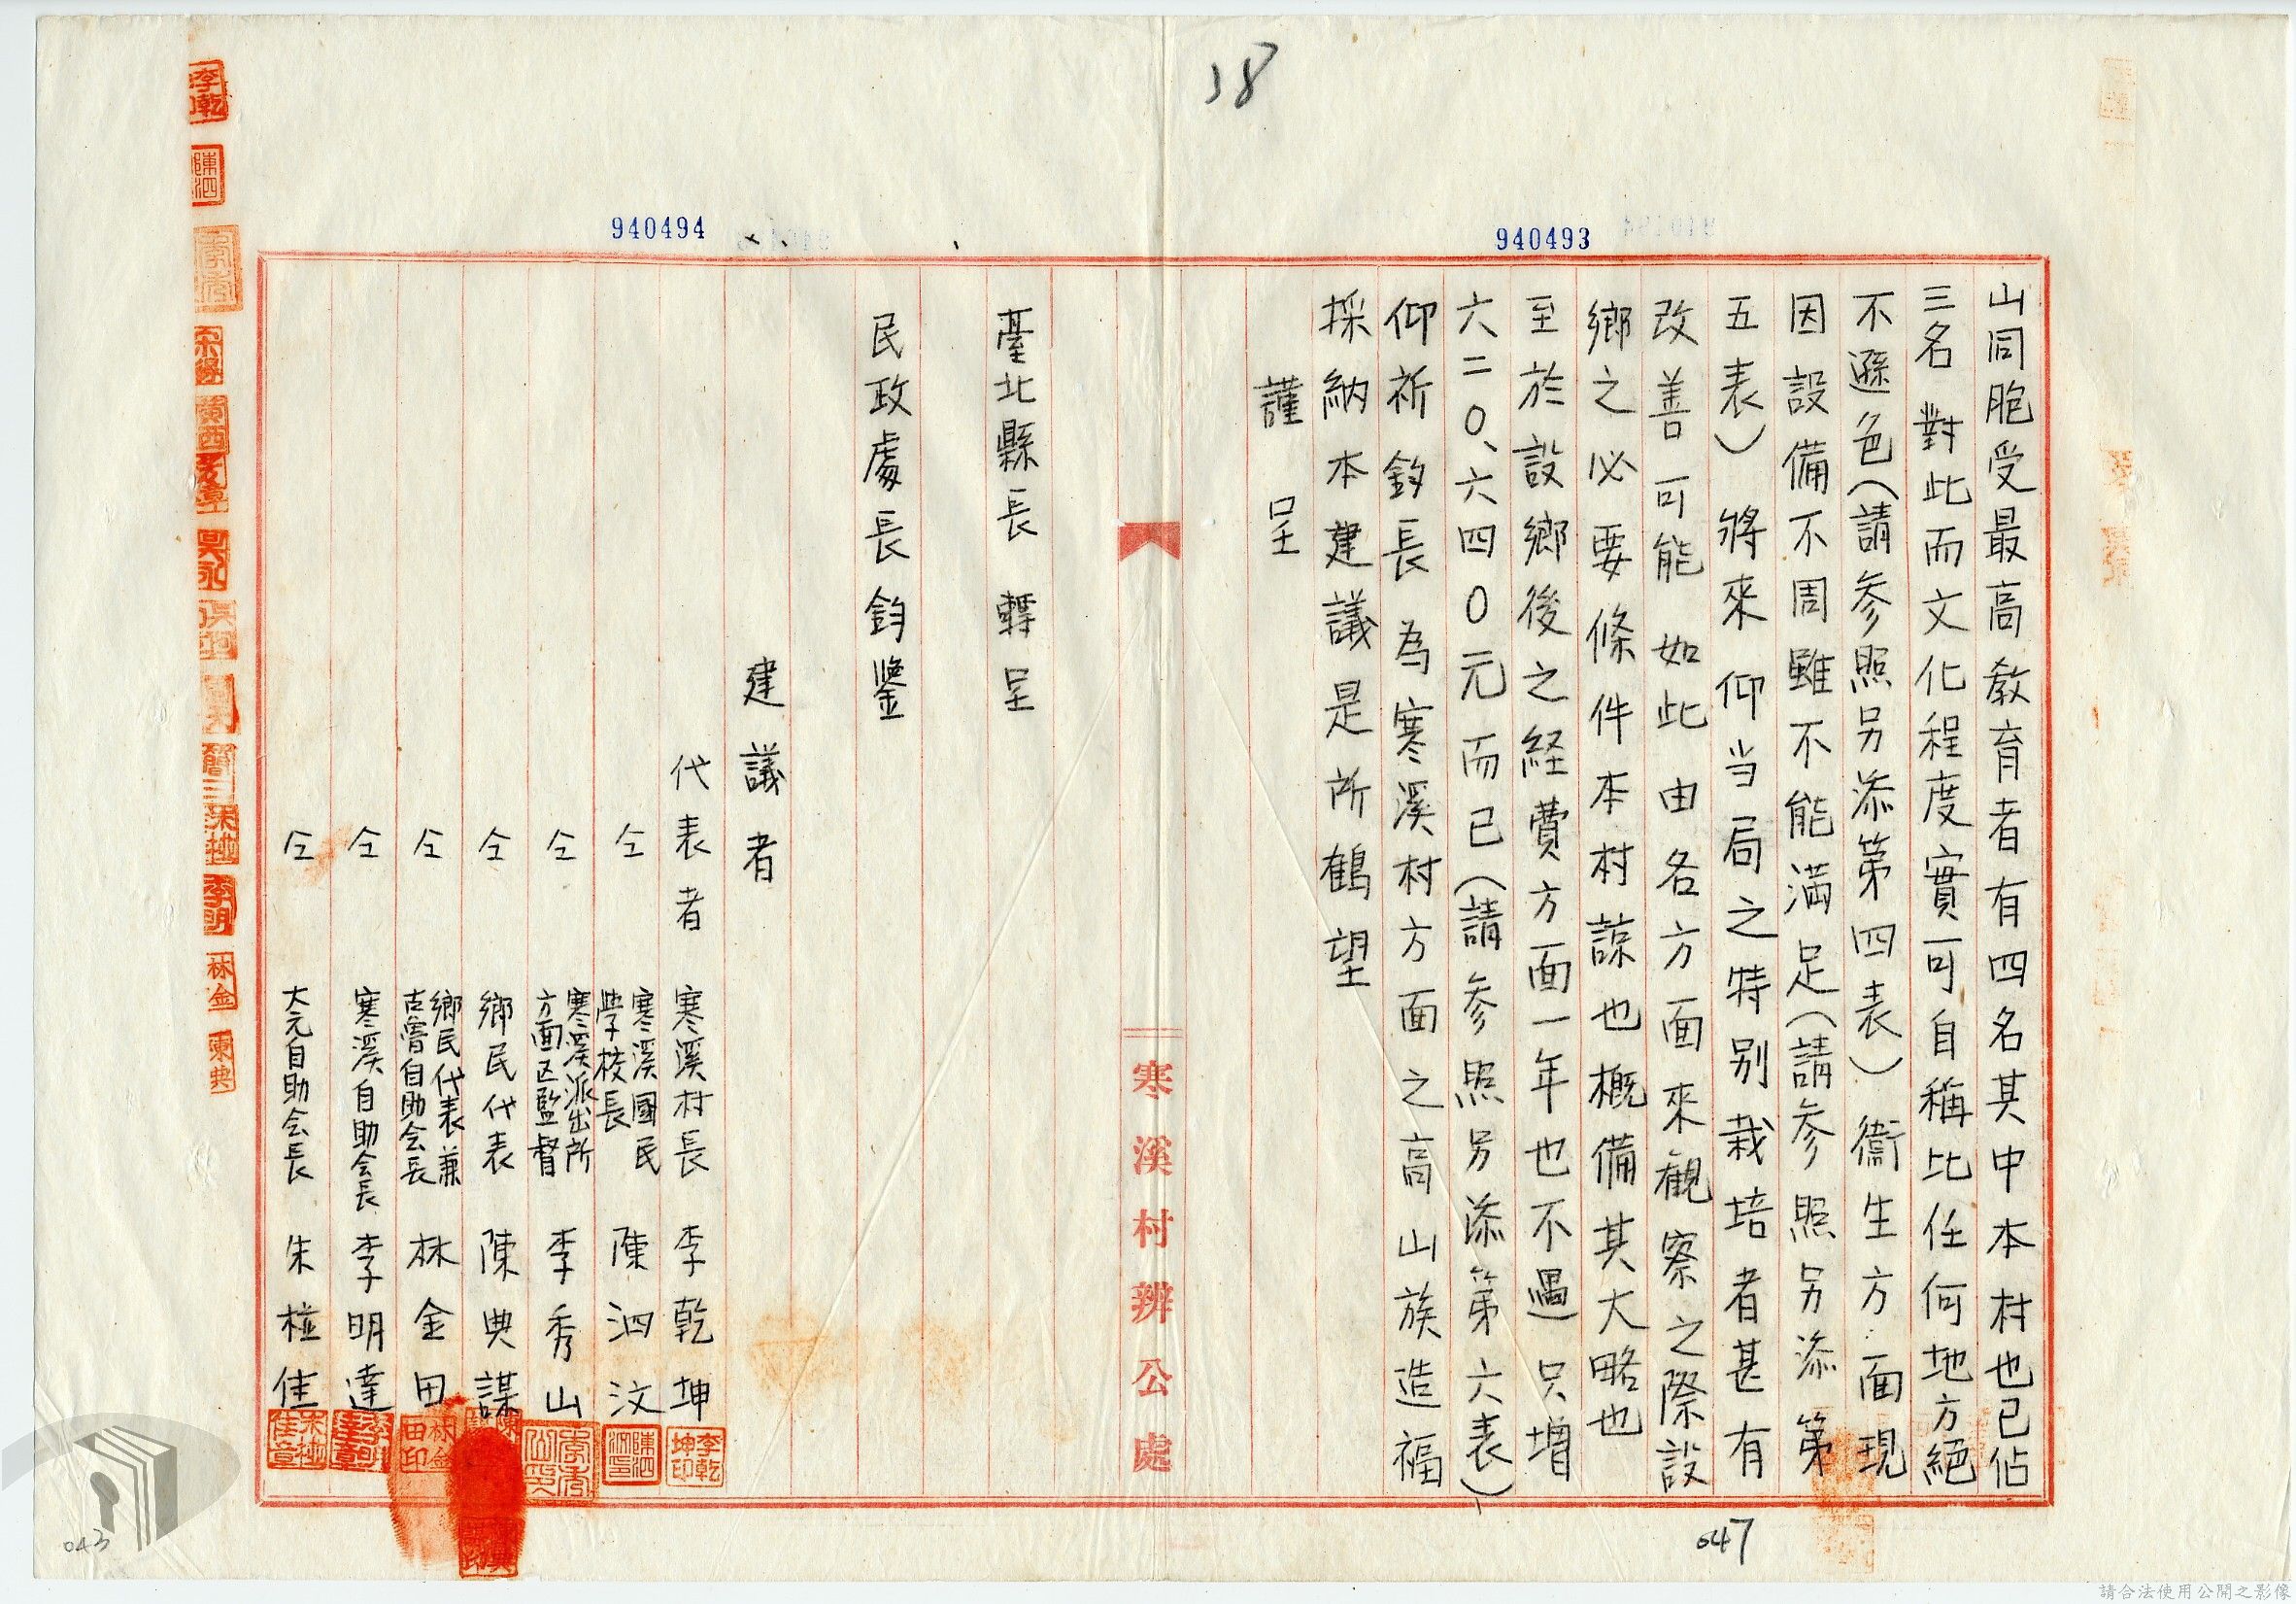 38
940493
山同胞受最高教育者有四名其中本村也已佔
三名 對此而文化程度實可自稱比任何地方絕
不遜色(請参照另添第四表) 衞生方面現
因設備不周雖不能満足(請参照另添第
五表) 將來仰当局之特別栽培者甚有
改善可能 如此由各方面來観察之際設
鄉之必要條件本村諒也概備其大略也
至於設鄉後之経費方面一年也不過只增
六二0、六四0元而已(請参照另添第六表)
仰祈鈞長為寒溪村方面之高山族造福
採納本建議是所鶴望
謹呈
寒溪村辦公處
940494
臺北縣長 轉呈
民政處長鈞鑒
建議者
代表者 寒溪村長 李乾坤
仝 寒溪國民学校長 陳泗汶
仝 寒溪派出所方面区監督 李秀山
仝 鄉民代表 陳典謀
仝 鄉民代表兼古魯自助会長 林金田
仝 寒溪自助会長 李明達
仝 大元自助会長 朱樁佳
李乾坤印
林金田印
047
043
請合法使用公開之影像